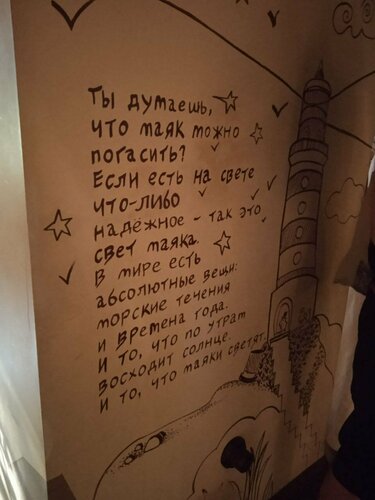 Ты думаешь,
что маяк можно
погасить?
Если есть на свете
что-либо
надёжное - так это
свет маяка.
В мире есть
абсолютные вещи:
морские течения
и времена года.
И то, что по утрам
восходит солнце.
И то, что маяки светят.